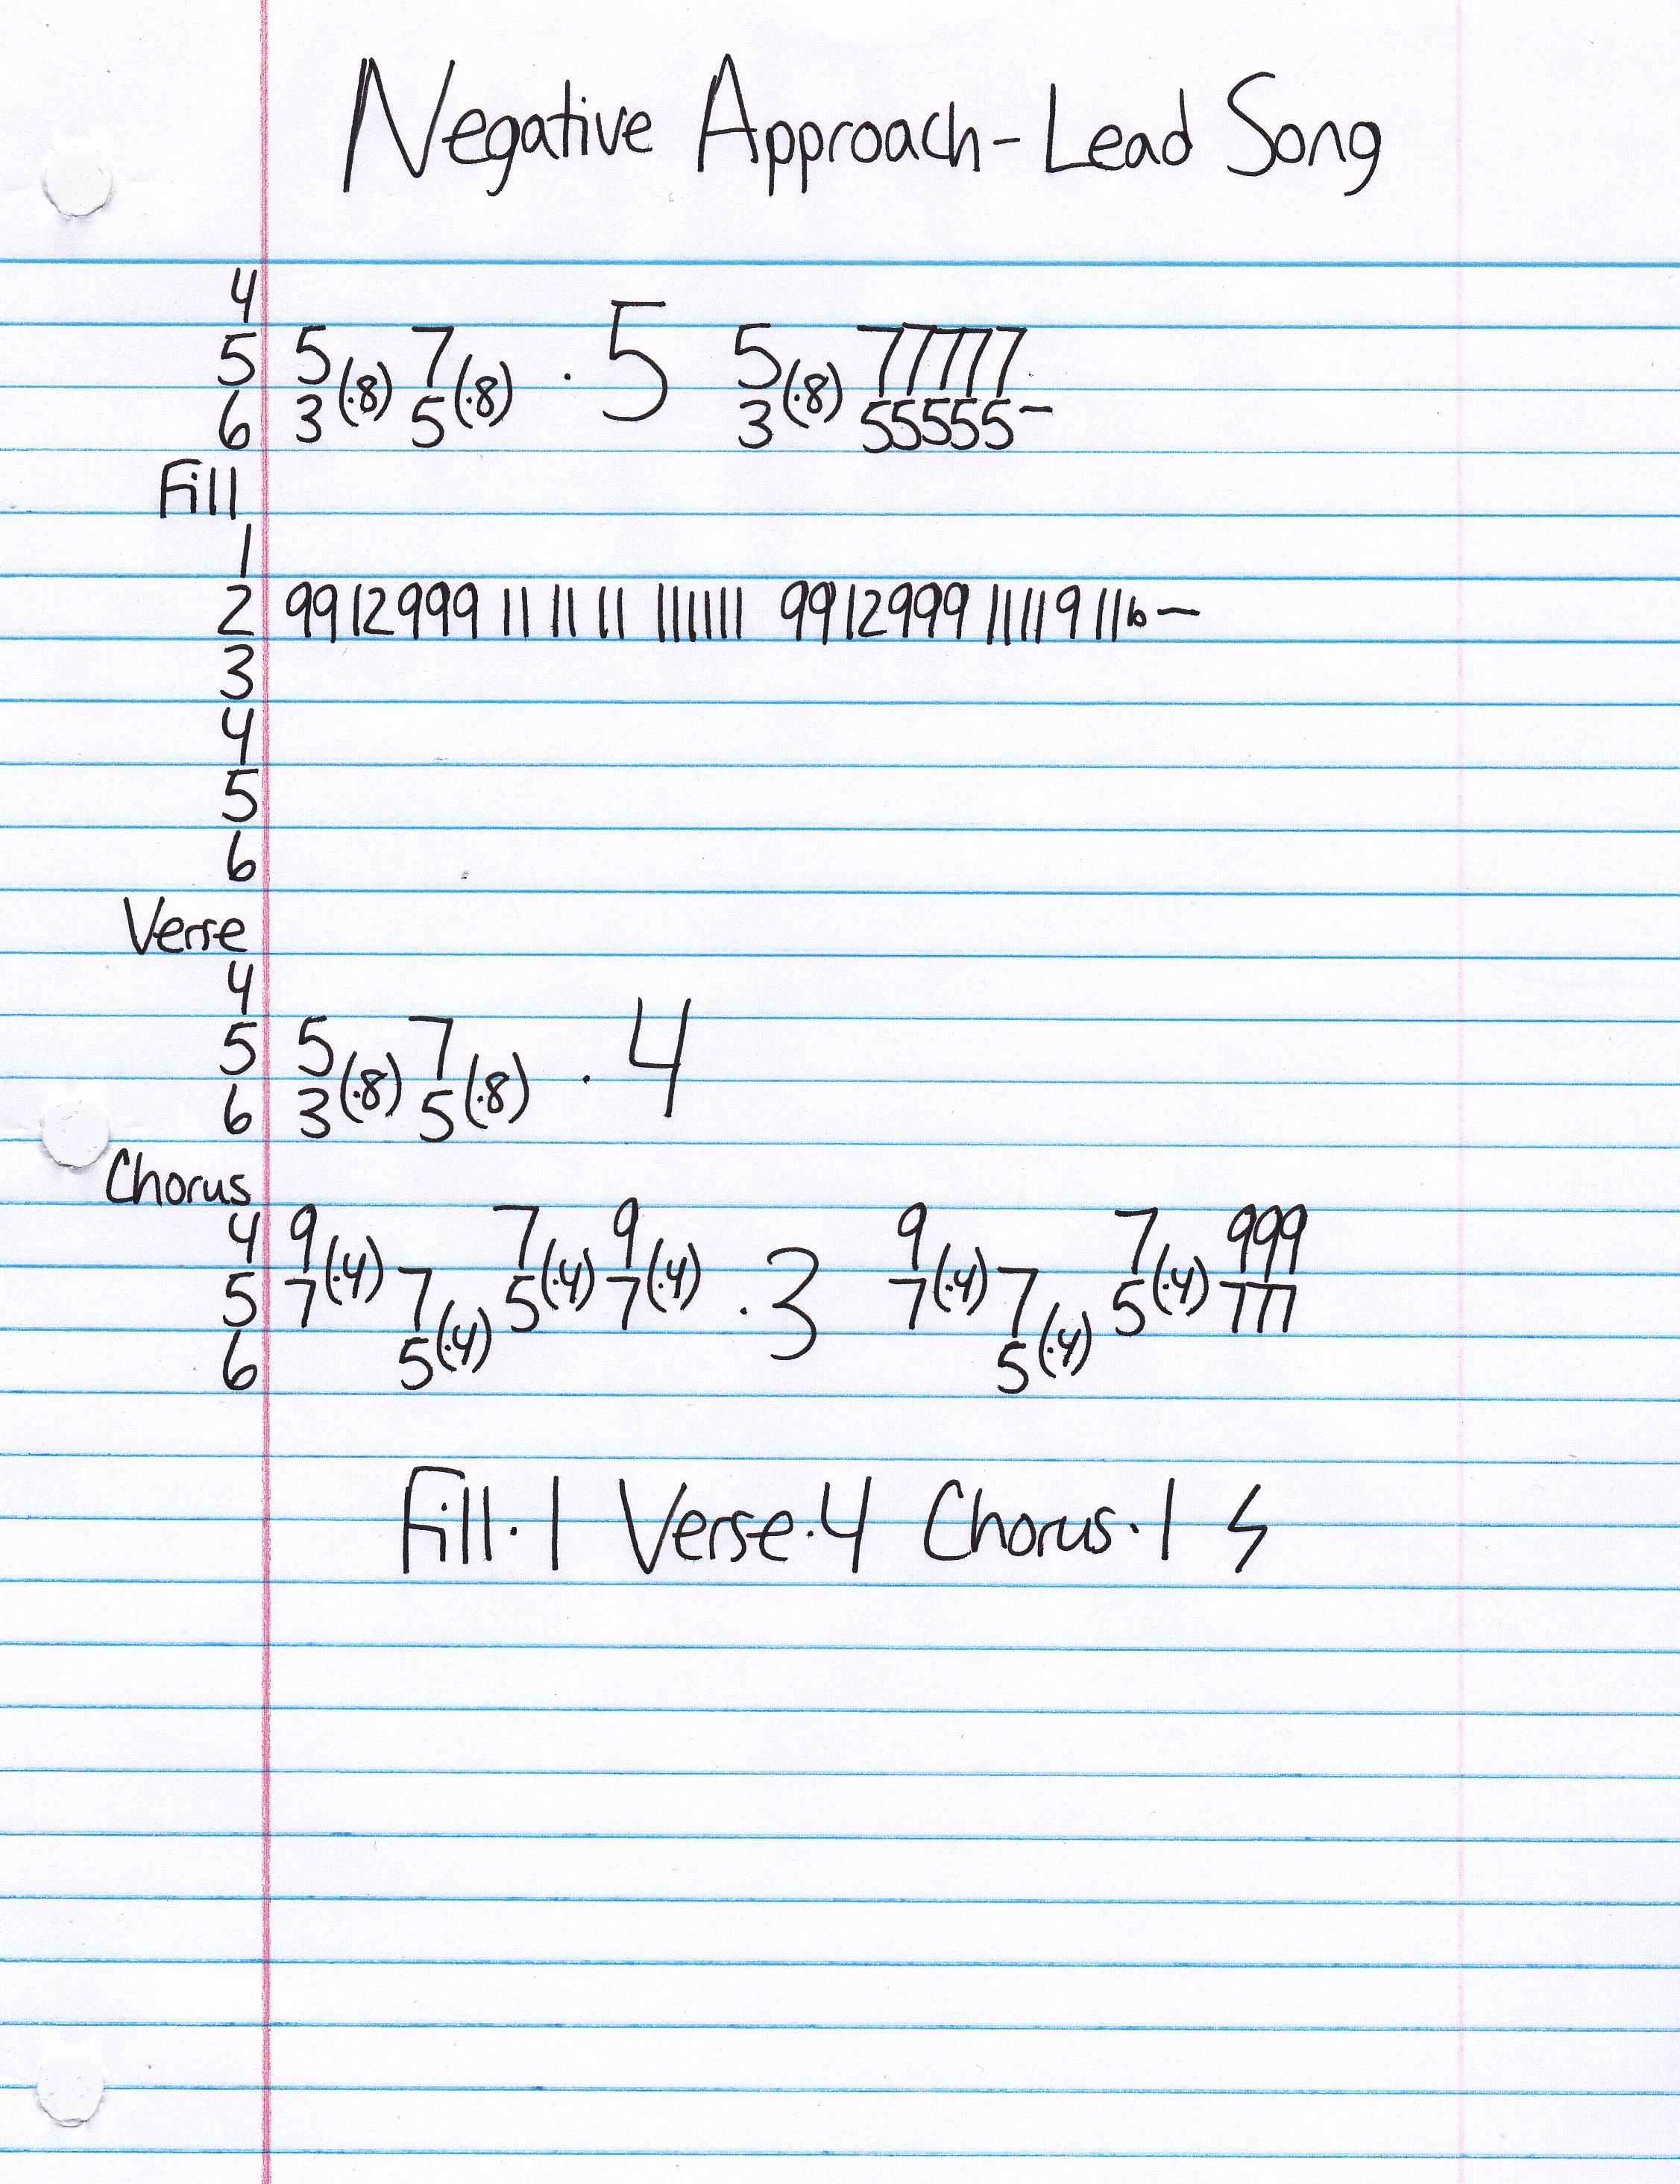 Negative Approach - Lead Song
4
5 5 7 5 77777
6 3 (·8) 5 (·8) · 5 3 (·8) 55555 –
Fill
1
2 99 12 999 11 11 11 11 11 11 99 12 999 11 11 9 11 1 b –
3
4
5
6
Verse
4
5 5 7
6 3 (·8) 5 (·8) · 4
Chorus
4 9 7 9 9 7 999
5 7 (·4) 7 5 (·4) 7 (·4) · 3 7 (·4) 7 5 (·4) 777
6 5 (·4) 5 (·4)
Fill·1 Verse·4 Chorus·1